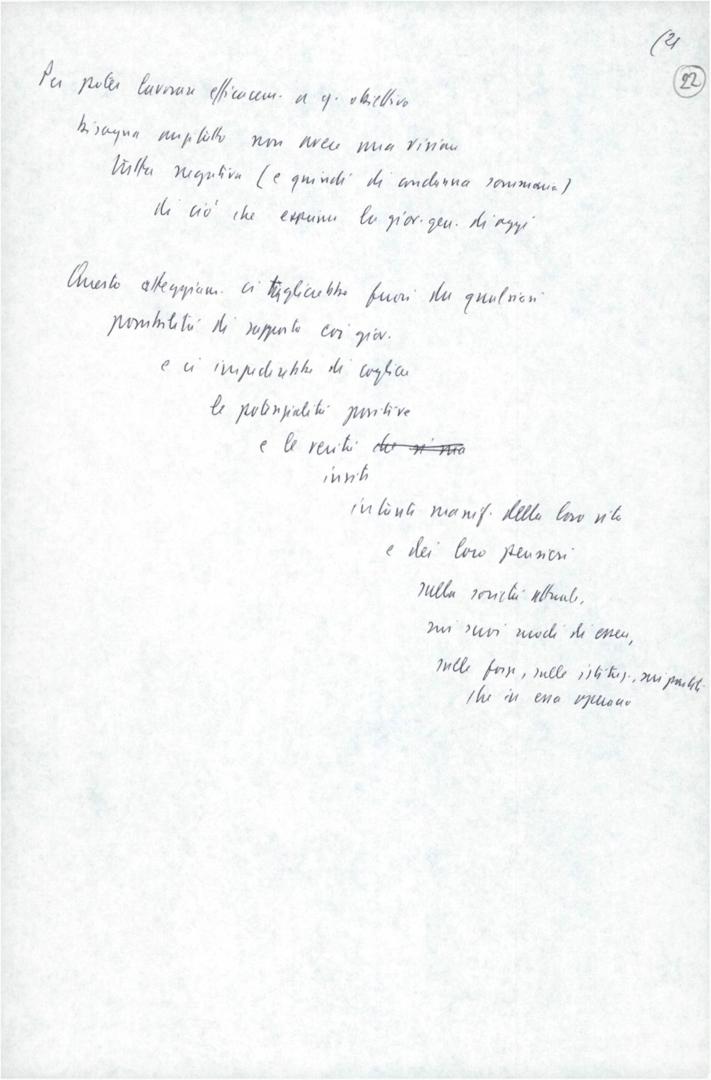 (21
22
Per poter lavorare efficacem. a q. obiettivo
bisogna anzitutto non avere una visione
tutta negativa (e quindi di condanna sommaria)
di ciò che esprime la giov. gen. di oggi
Questo atteggiam. ci taglierebbe fuori da qualsiasi
possibilità di rapporto coi giov.
e ci impedirebbe di cogliere
le potenzialità positive
e le verità che si ma
insite
in tante manif. della loro vita
e dei loro pensieri
sulla società attuale,
sui suoi modi di essere,
sulle forze, sulle istituz., sui partiti
che in essa operano